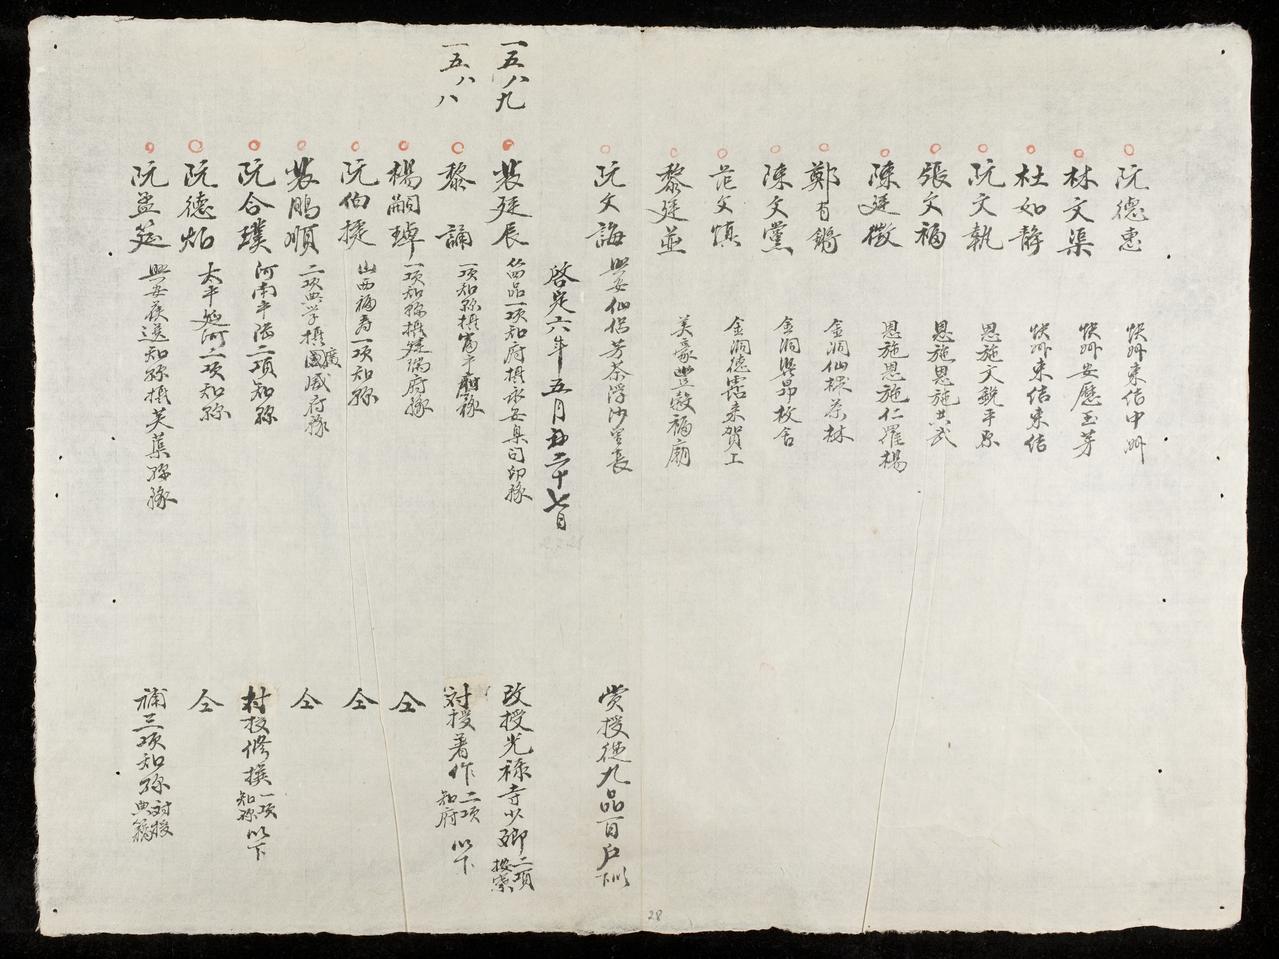 阮德惠 快州東結中州
林文渠 快州安歷玉芽
杜如靜 快州東結東結
阮文執 恩施文銳平原
張文福 恩施恩施共武
陳廷徵 恩施恩施仁羅楊
鄭有鏘 金洞仙槎茶林
陳文黨 金洞興昂枚舍
范文慎 金洞德霑來賀工
黎廷並 美豪豐穀福廟
阮文誨 興安仙侶芳茶浮沙里長 賞授從九品百戶以下
啓定六年五月二十七日
一五八九 裴廷辰 品一項知府攝永安臬司印務 改授光祿寺少卿二項按察
一五八八 黎誦 一項知縣攝富平府務 対授著作二項知府以下
楊嗣璋 一項知縣攝建瑞府務 仝
阮伯 山西福壽一項知縣 仝
裴鵬順 二項典学攝廣國威府務 仝
阮合璞 河南平陸二項知縣 対授修撰一項知縣以下
阮德焰 太平延河二項知縣 仝
阮孟筵 興安候選知縣攝芙蕖縣務 補三項知縣対授典籍
28